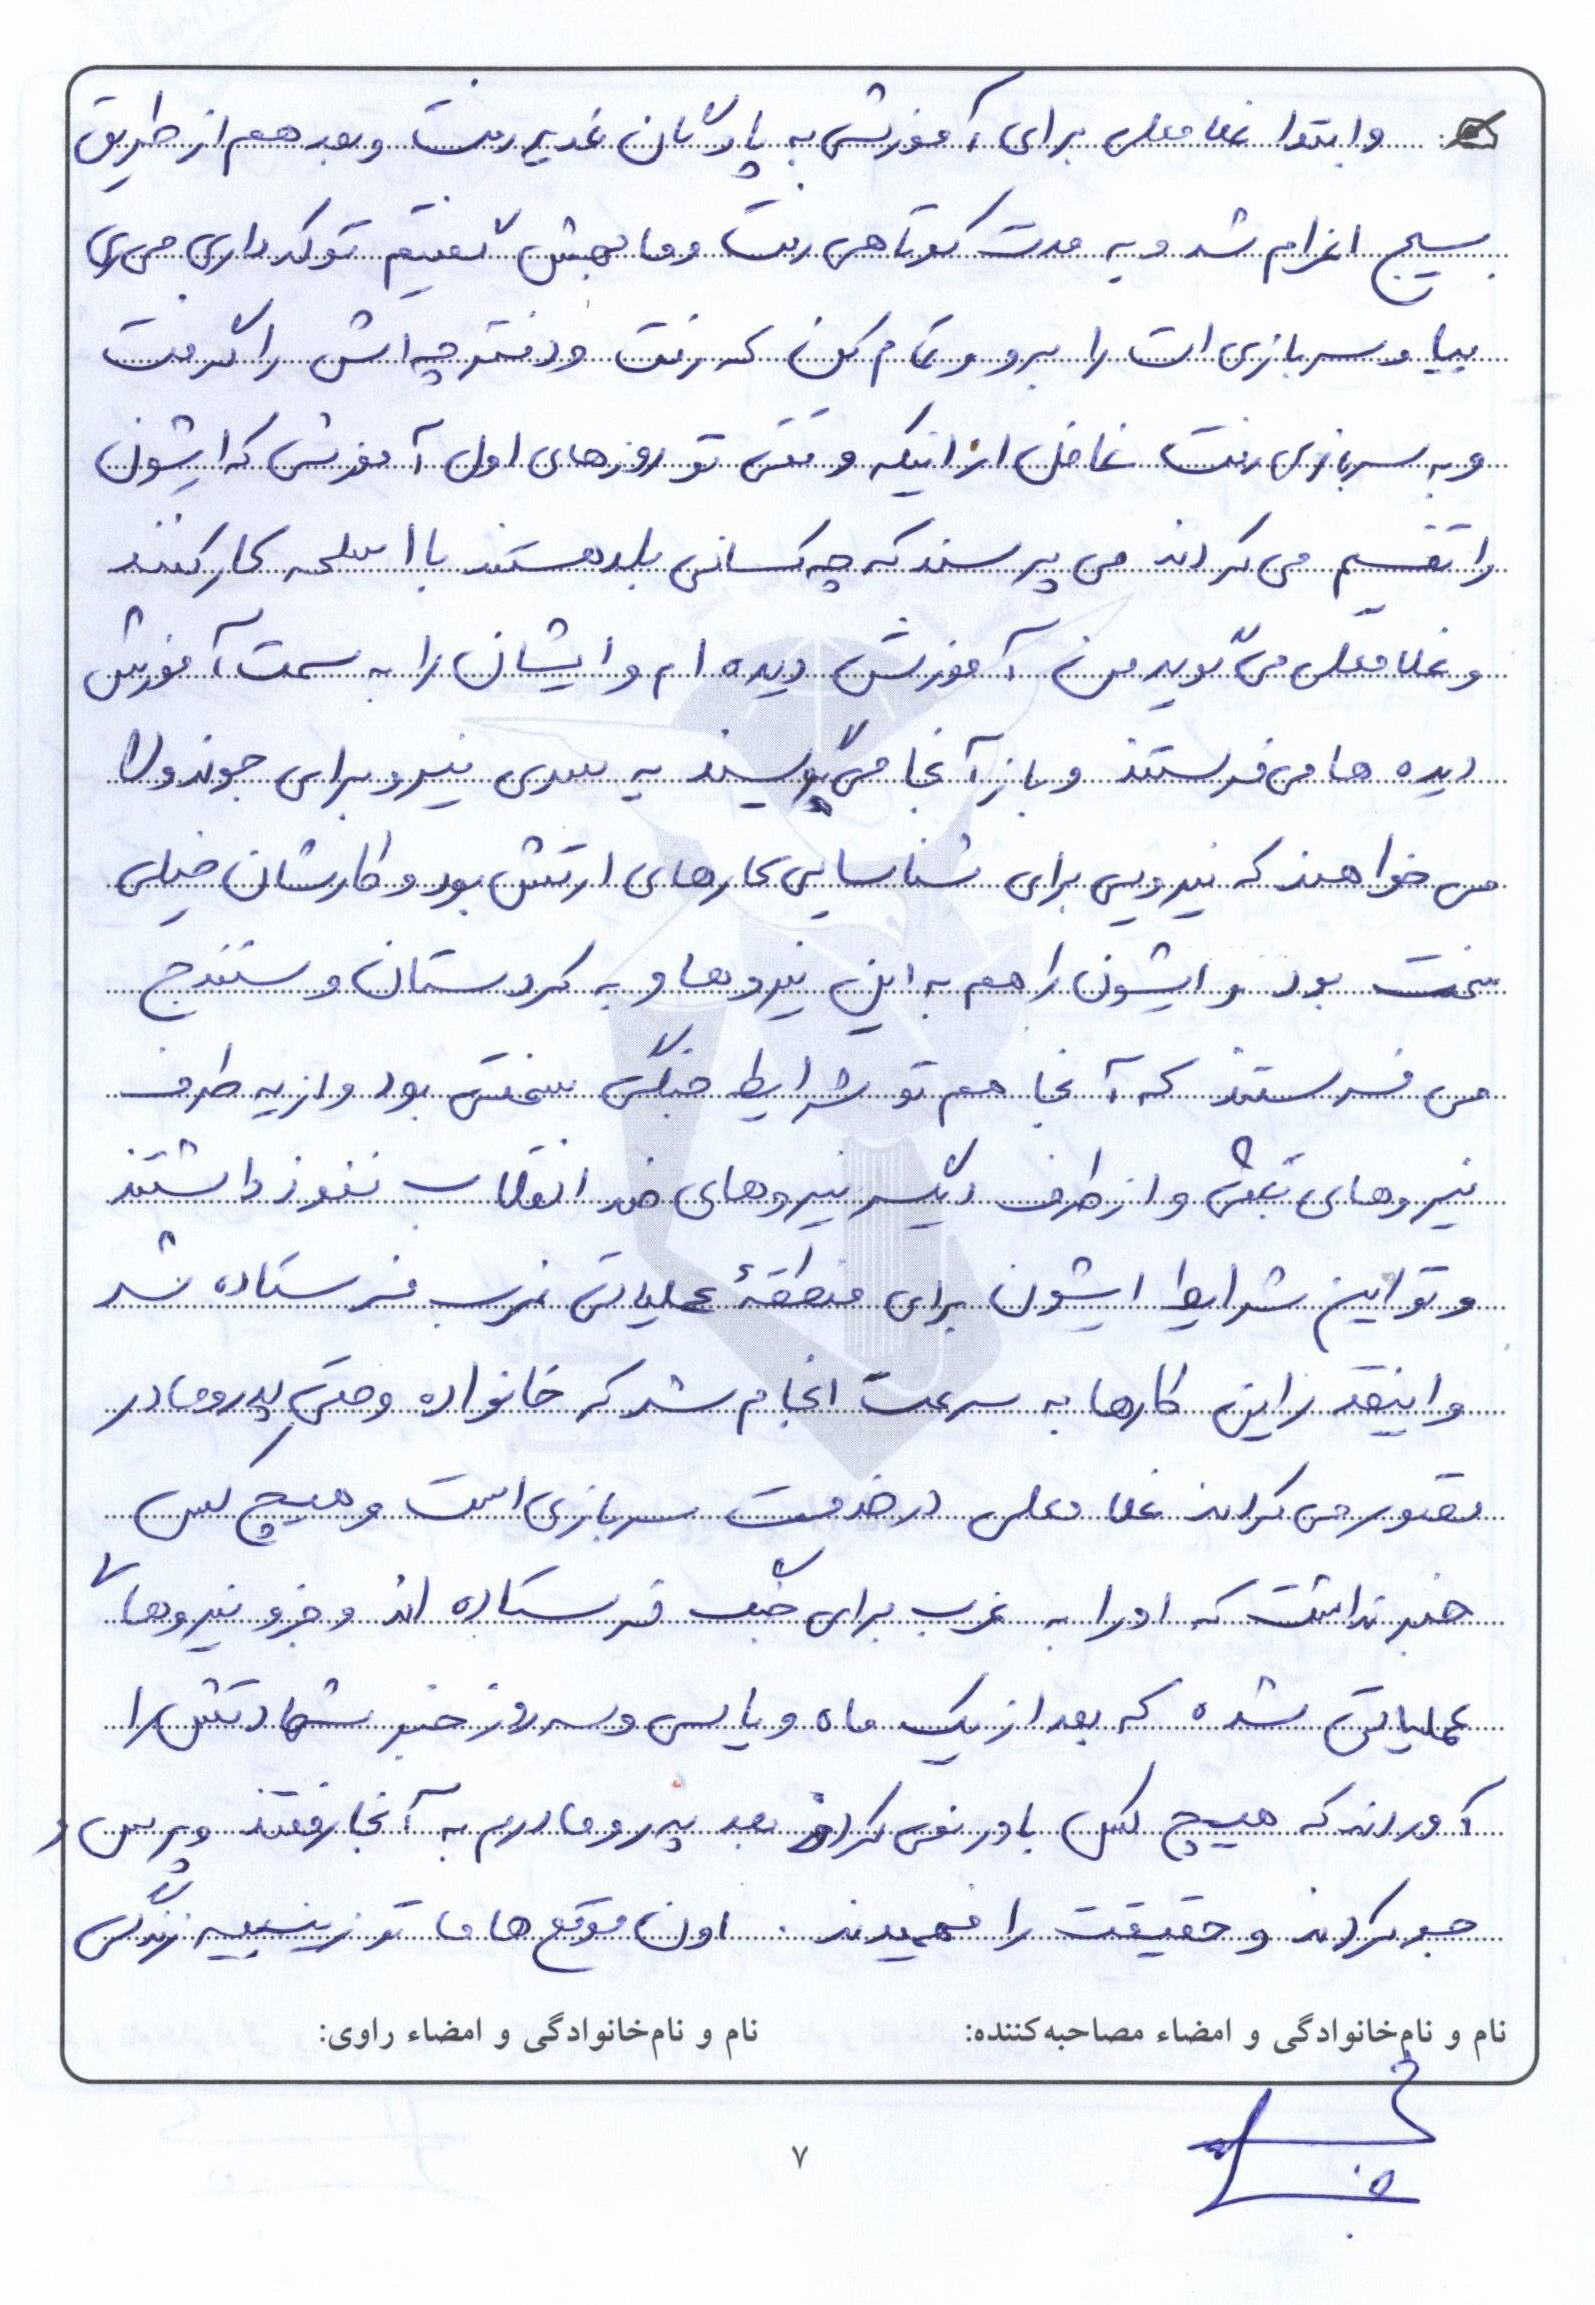 وابتدا غلامعلی برای آموزش به پادگان غدیر رفت و بعد هم از طریق
بسیج اعزام شد و یه مدت کوتاهی رفت و ما بهش گفتیم تو که داری می ری
بیا و سربازی ات را برو و تمام کن که رفت و دفترچه اش را گرفت
و به سربازی رفت غافل از اینکه وقتی تو روزهای اول آموزش که ایشون
را تقسیم می کردند می پرسند که چه کسانی بلد هستند با اسلحه کار کنند
و غلامعلی می گوید من آموزش دیده ام و ایشان را به سمت آموزش
دیده ها می فرستند و باز آنجا می پرسند یه سری نیرو برای
می خواهند که نیرویی برای شناسایی کارهای ارتش بود و کارشان خیلی
سخت بود و ایشون را هم به این نیروها و به کردستان و سنندج
می فرستند که آنجا هم تو شرایط جنگی سختی بود و از یه طرف
نیروهای بعثی و از طرف دیگر نیروهای ضد انقلاب نفوذ داشتند
و تو این شرایط ایشون برای منطقهٔ عملیاتی غرب فرستاده شد
و اینقدر این کارها به سرعت انجام شد که خانواده و حتی پدر و مادر
تصور می کردند غلامعلی در خدمت سربازی است و هیچ کس
خبر نداشت که او را به غرب برای جنگ فرستاده اند و جزو نیروها
عملیاتی شده که بعد از یک ماه و یا سی و سه روز خبر شهادتش را
آوردند که هیچ کس باور نمی کردند بعد پدر و مادرم به آنجا رفتند و پرس و
جو کردند و حقیقت را فهمیدند. اون موقع ها ما تو زینبیه زندگی
نام و نام‌خانوادگی و امضاء مصاحبه‌کننده: نام و نام‌خانوادگی و امضاء راوی:
۷